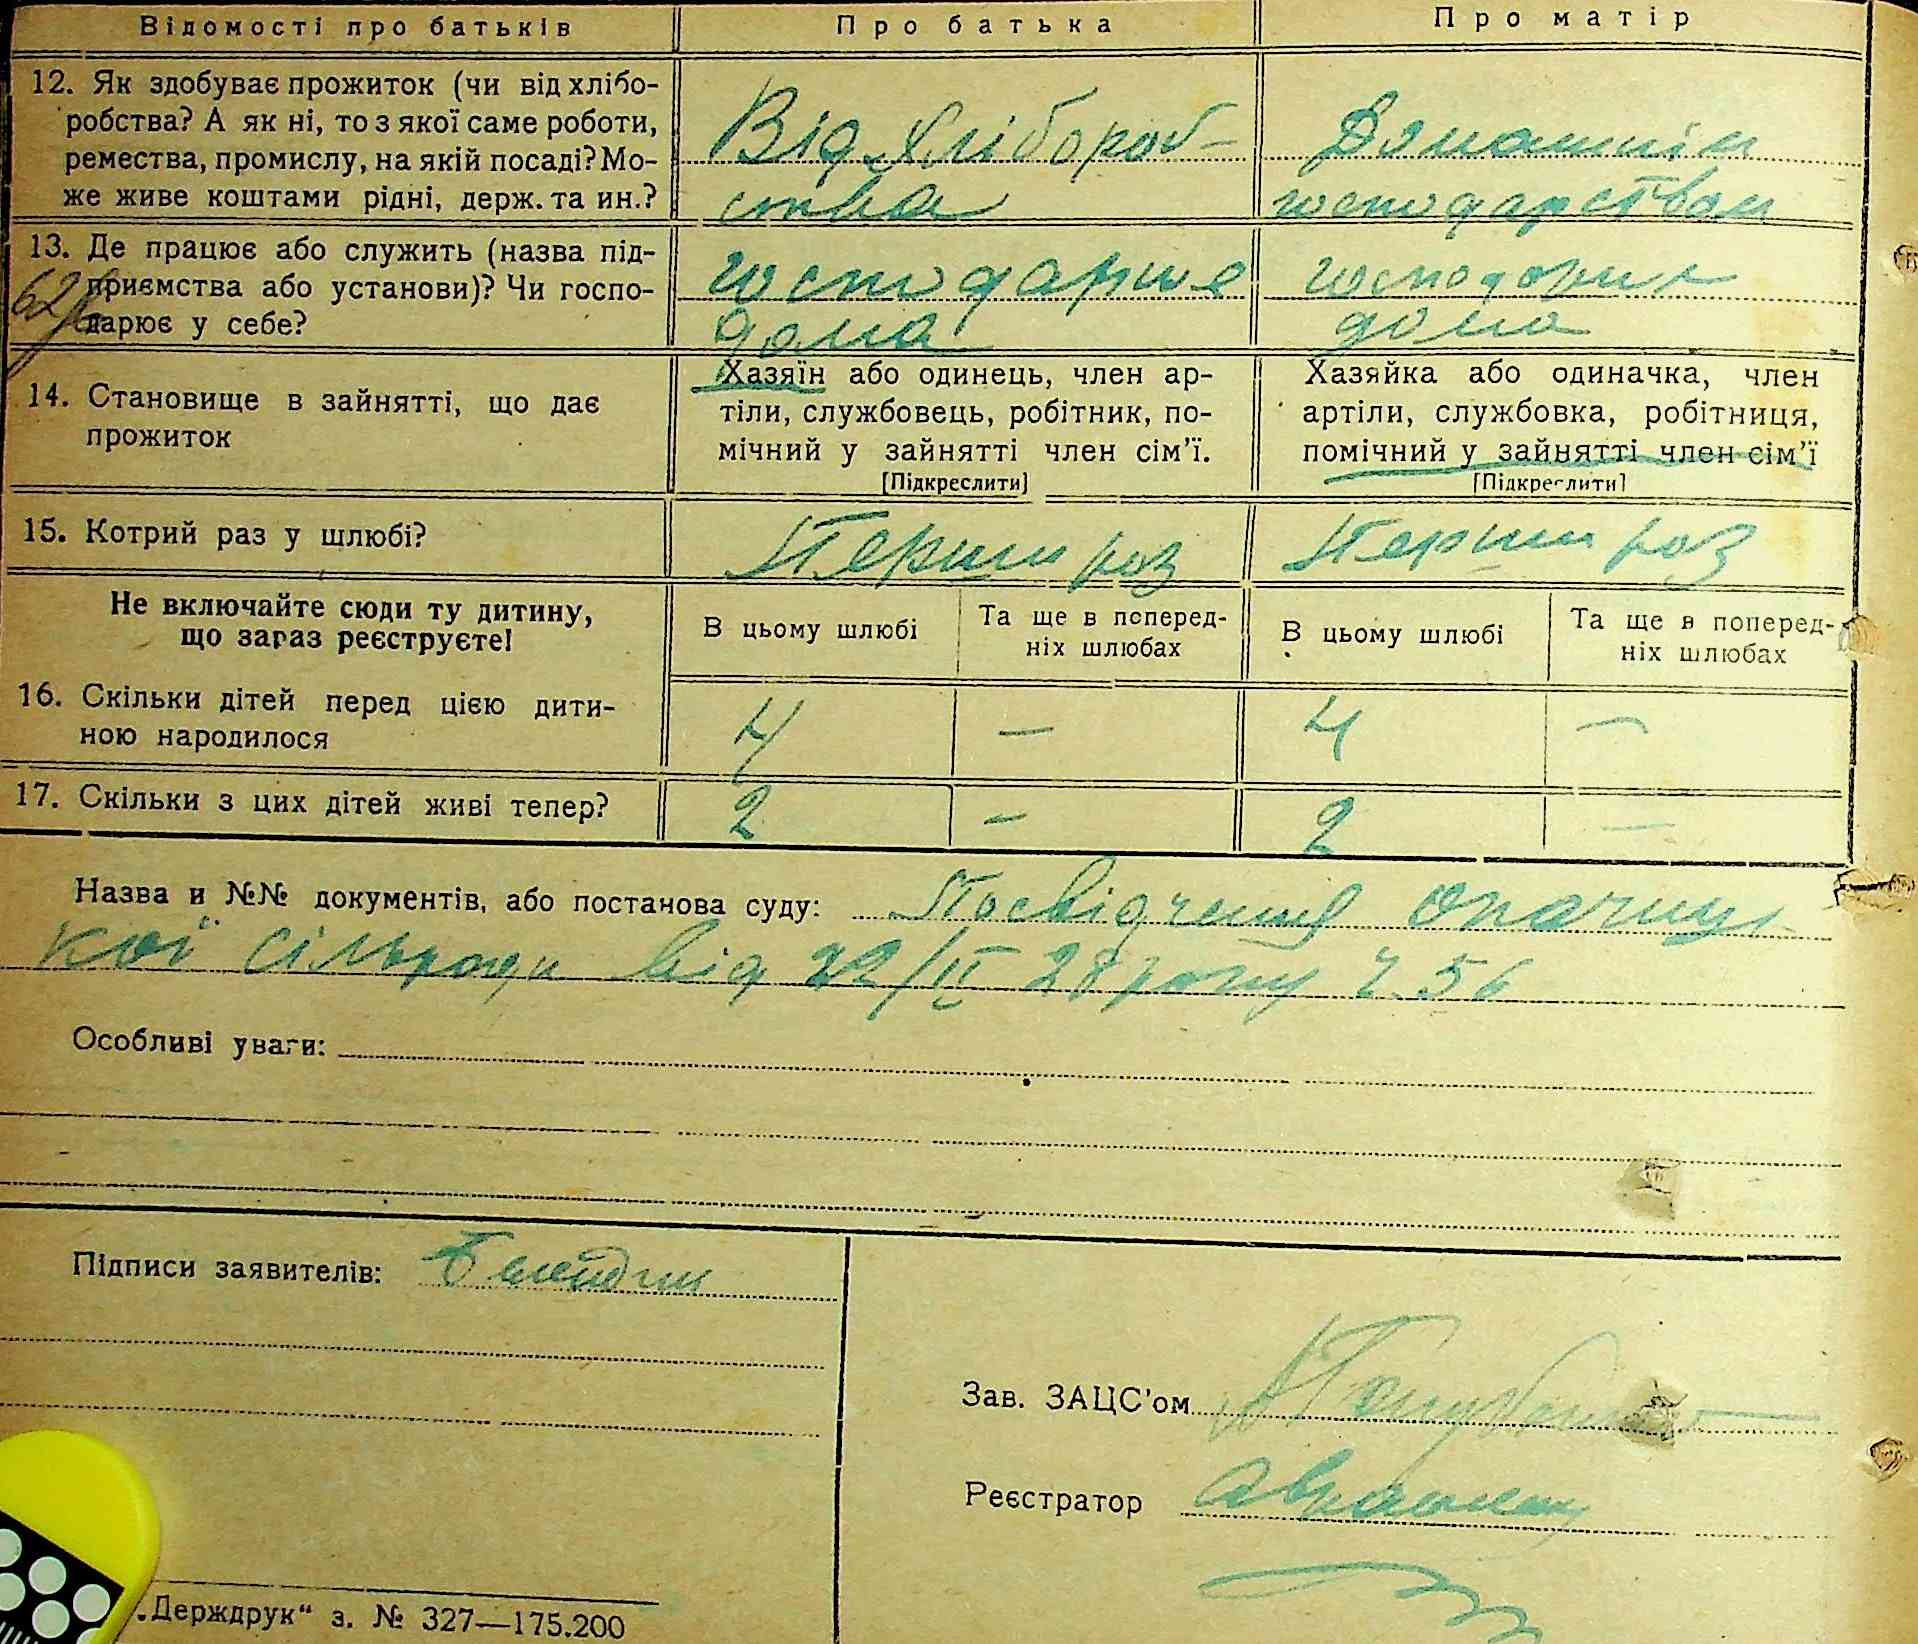 Відомості про батьків Про батька Про матір
12. Як здобуває прожиток (чи від хлібо-
робства? А як ні, то з якої саме роботи,
ремества, промислу, на якій посаді? Мо-
же живе коштами рідні, держ. та ин.?
Від хлібороб-
ства
Домашнім
господарством
13. Де працює або служить (назва під-
приємства або установи)? Чи госпо-
дарює у себе?
господарює
дома
господарює
дома
14. Становище в зайнятті, що дає
прожиток
Хазяїн або одинець, член ар-
тіли, службовець, робітник, по-
мічний у зайнятті член сім'ї.
[Підкреслити]
Хазяйка або одиначка, член
артіли, службовка, робітниця,
помічний у зайнятті член сім'ї
[Підкреслити]
15. Котрий раз у шлюбі?
Перши раз
Перши раз
Не включайте сюди ту дитину,
що зараз реєструєте!
В цьому шлюбі
Та ще в поперед-
ніх шлюбах
В цьому шлюбі
Та ще в поперед-
ніх шлюбах
16. Скільки дітей перед цією дити-
ною народилося
4 — 4 —
17. Скільки з цих дітей живі тепер?
2 - 2 —
Назва и №№ документів, або постанова суду: Посвідчення
кої сільради від 22/II 28 року ч. 56
Особливі уваги:
Підписи заявителів:
Зав. ЗАЦС'ом
Реєстратор
„Держдрук“ з. № 327—175.200